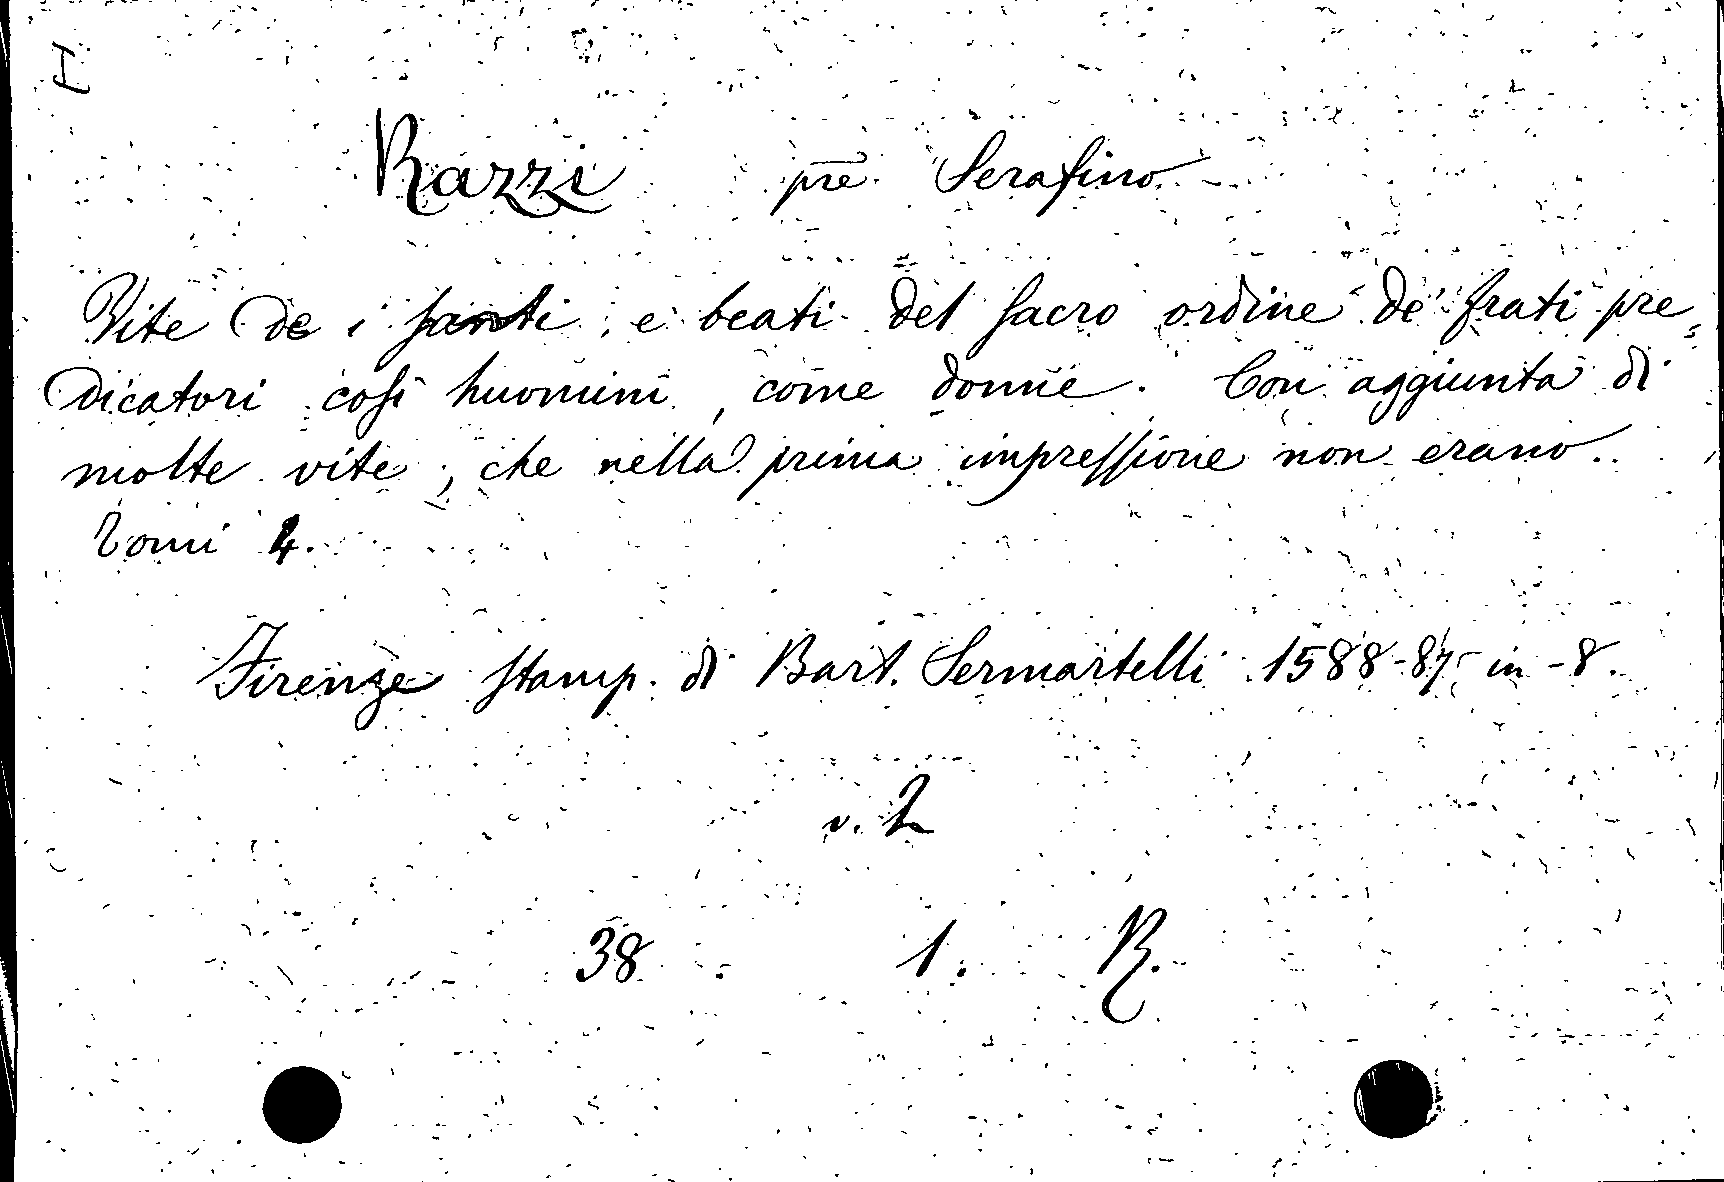 I
Razzi pr̄e Serafino
Vite de i santi, e beati del sacro ordine de' frati pre„
dicatori cosi huomini, come donne. Con aggiunta di
molte vite, che nella prima impressione non erano.
Tomi 4.
Firenze stamp. di Bart. Sermartelli 1588-87 in-8.
v. 2
38 1. R.